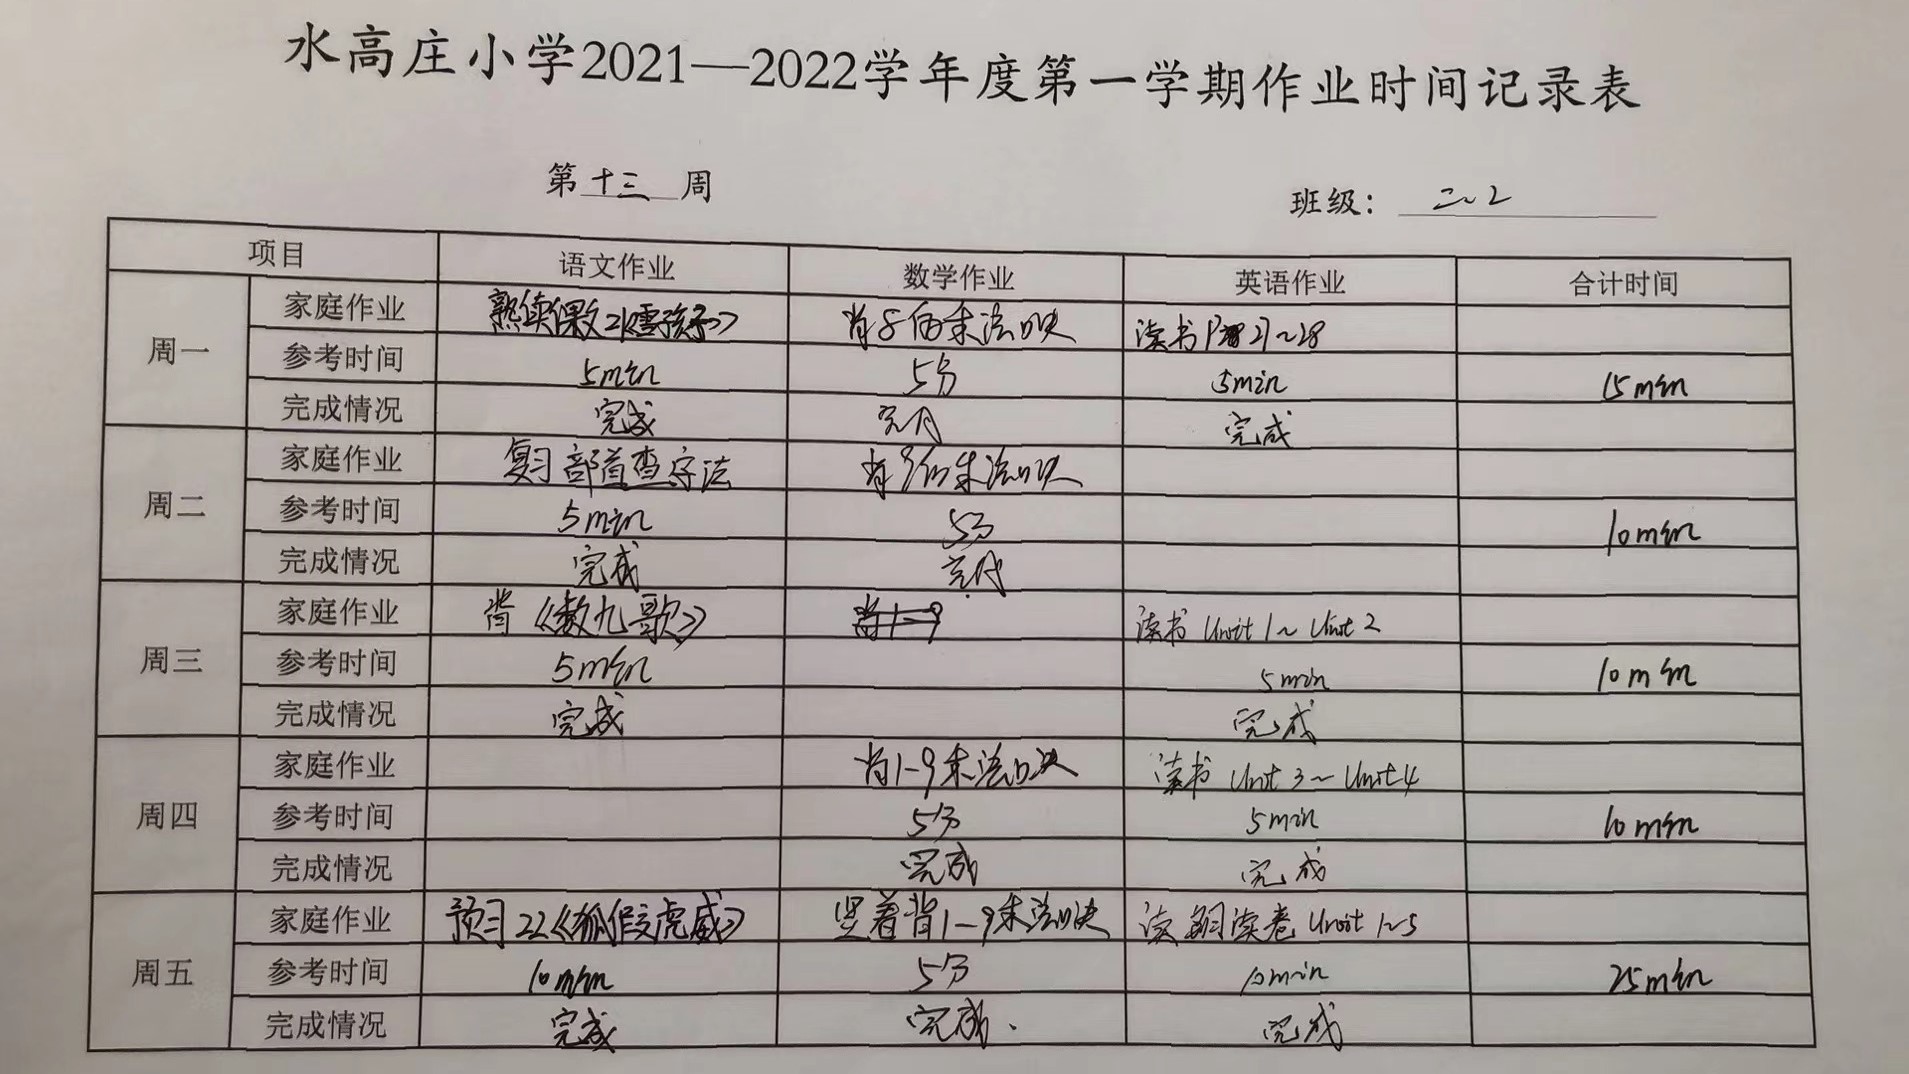 水高庄小学2021—2022学年度第一学期作业时间记录表
第 十三 周 班级： 二、2
项目 语文作业 数学作业 英语作业 合计时间
周一 家庭作业 熟读课文21《雪孩子》 背8的乘法口诀 读书P 27~28
参考时间 5min 5分 5min 15min
完成情况 完成 完成 完成
周二 家庭作业 复习部首查字法 背9的乘法口诀
参考时间 5min 5分 10min
完成情况 完成 完成
周三 家庭作业 背《数九歌》 读书 Unit 1~Unit 2
参考时间 5min 5min 10min
完成情况 完成 完成
周四 家庭作业 背1-9乘法口诀 读书 Unit 3~Unit 4
参考时间 5分 5min 10min
完成情况 完成 完成
周五 家庭作业 预习22《狐假虎威》 竖着背1-9乘法口诀 读 阅读卷 Unit 1~5
参考时间 10min 5分 10min 25min
完成情况 完成 完成. 完成